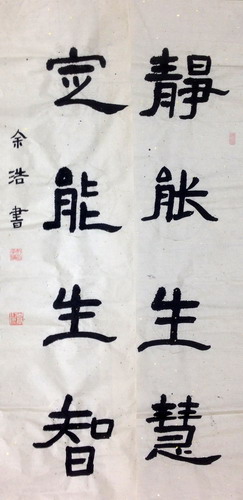 靜能生慧
定能生智
余浩書